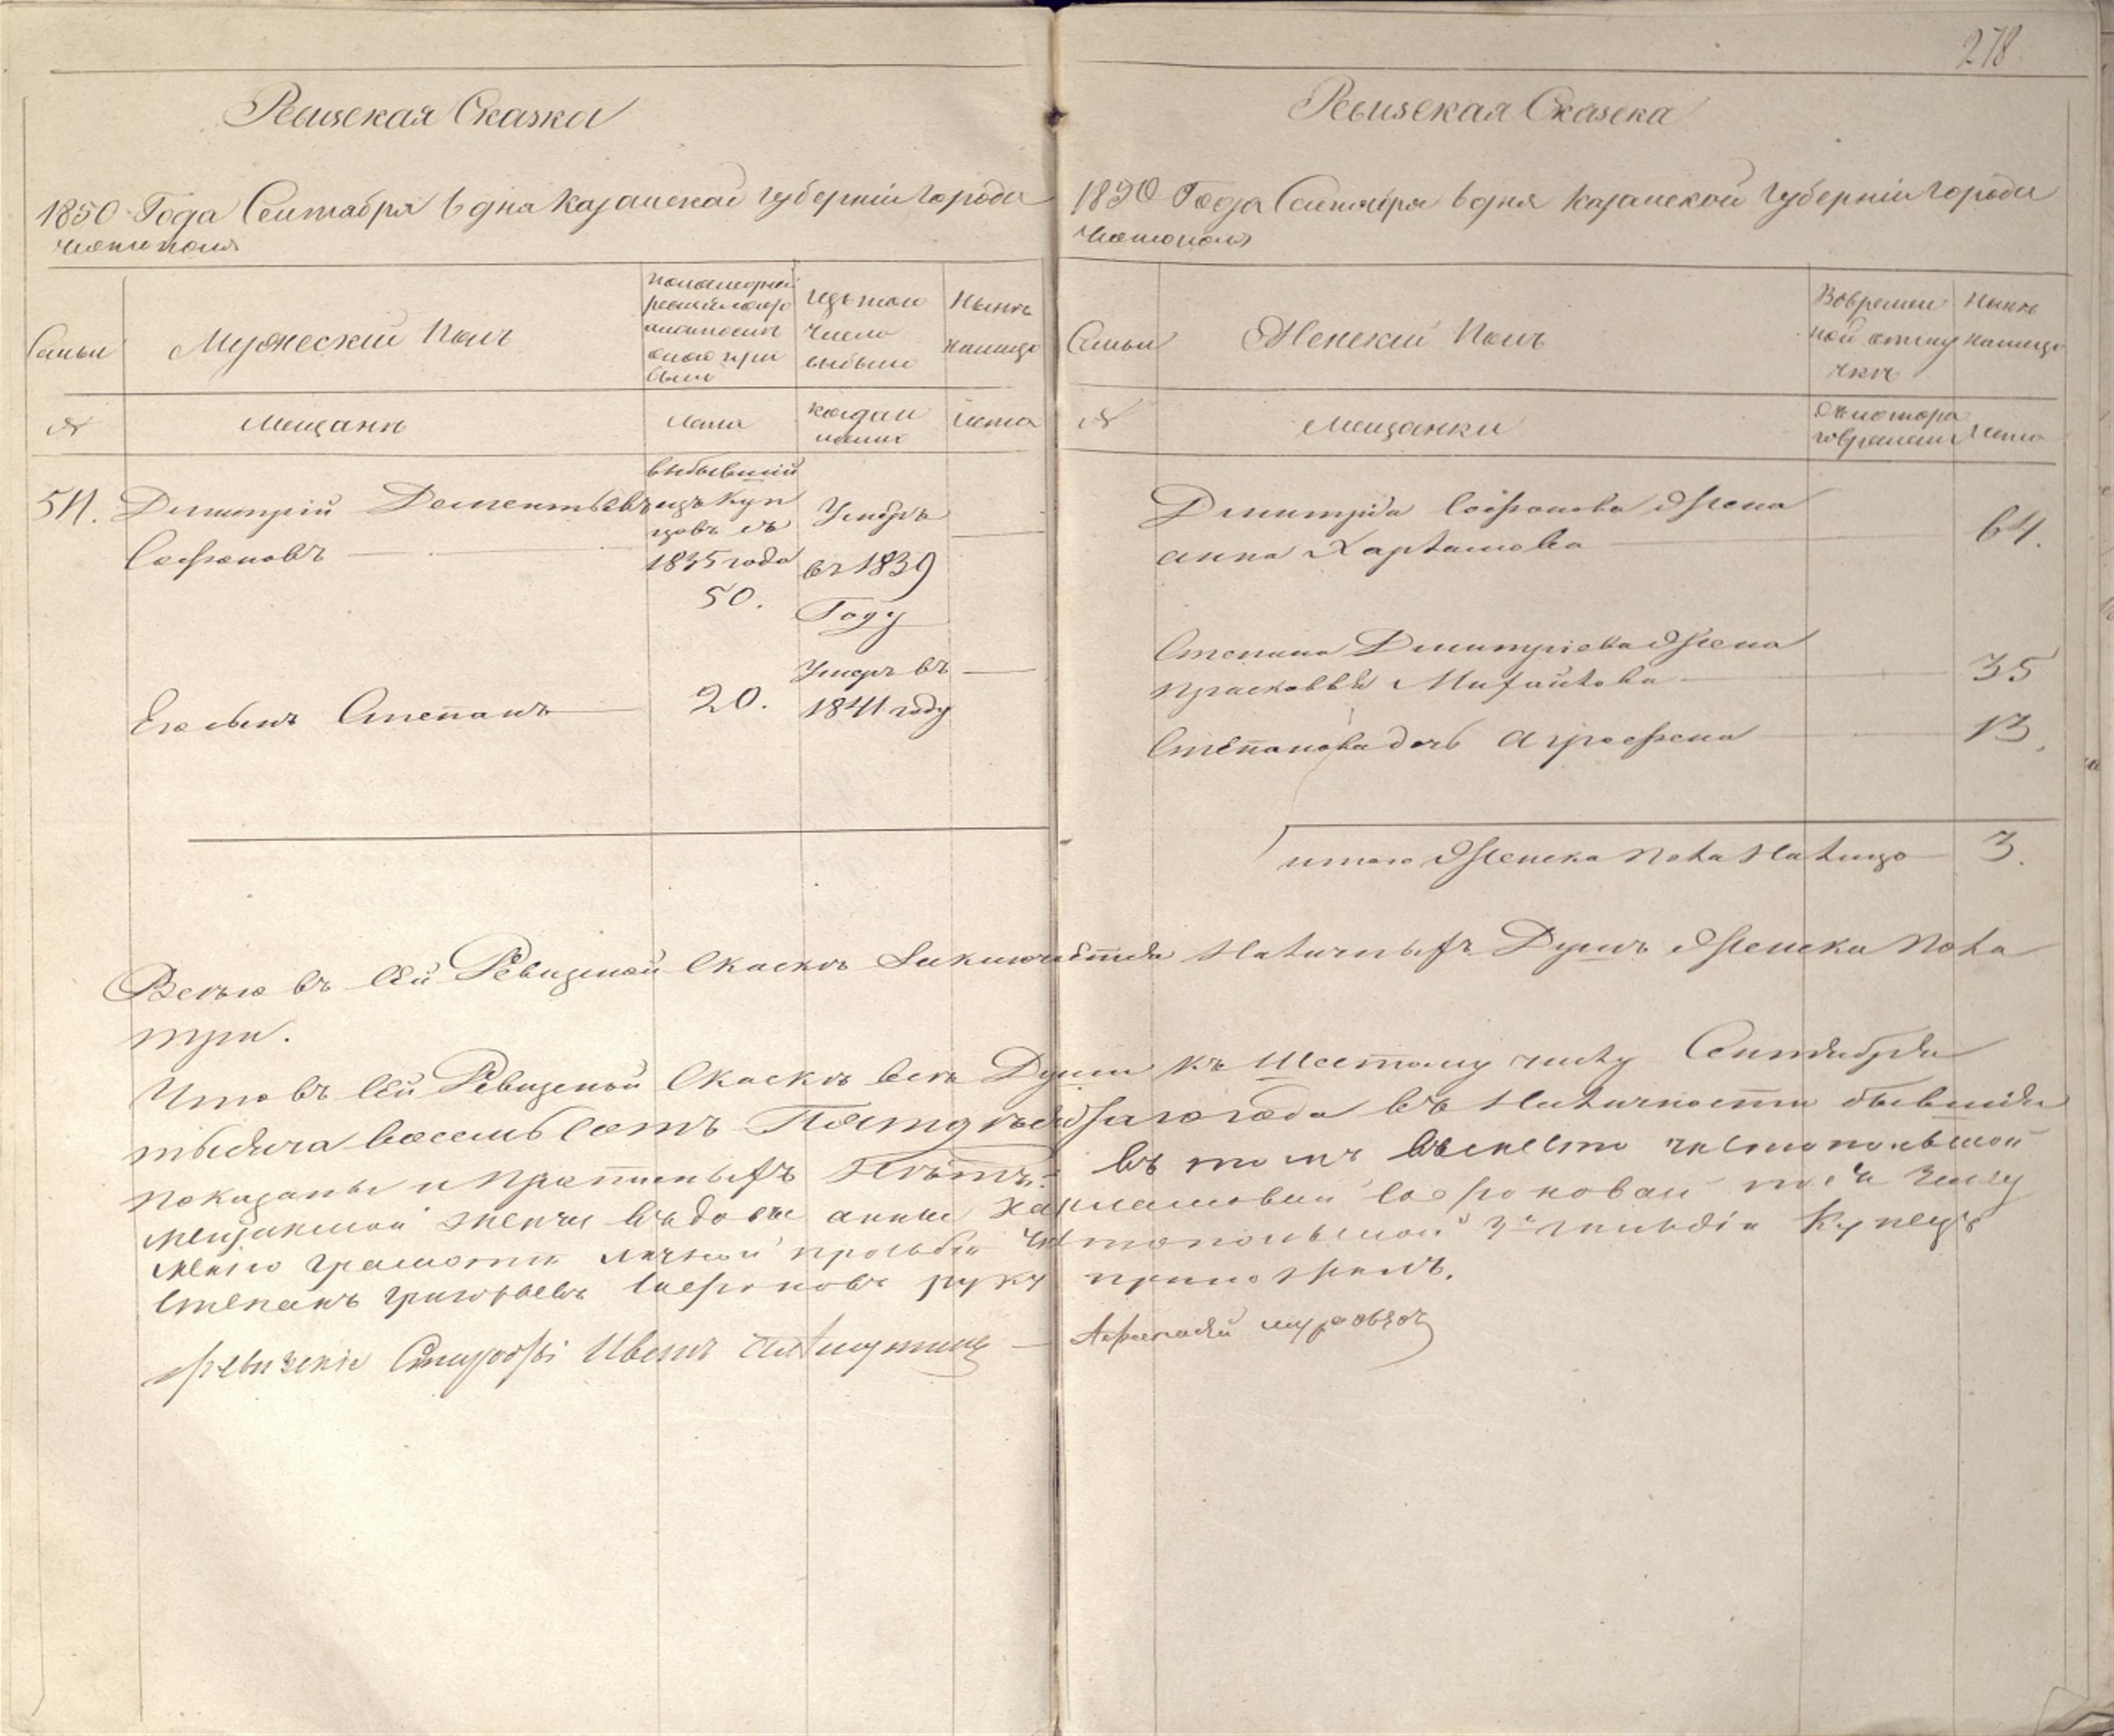 278.
Ревизская Сказка
1850 Года Сентября 6 дня Казанской Губерніи Города
Чистополя
Семьи
Мужеский Полъ
По последней ревизіи состояло и после оной прибыло
Изъ того числа выбыло
Ныне на лицо
№
Мещане
Лета
Когда именно
Лета
511.
Димитрий Дементьевъ
Софроновъ
выбывший
изъ Куп
цовъ съ
1835 года
50.
Умеръ
въ 1839
Году
Его сынъ Степанъ
20.
Умеръ въ
1841 году
Ревизская Сказка
1850 Года Сентября 6 дня Казанской Губерніи Города
Чистополя
Семьи
Женский Полъ
Во времен
ной отлу
чке
Ныне
на лицо
№
Мещанки
Съ котора
го времени
Лета
Димитрія Софронова Жена
Анна Харламова
64.
Степана Димитріева Жена
Прасковья Михайлова
35
Степанова дочь Аграфена
13.
Итого Женска Пола На лицо
3.
Всего въ сей Ревизской Сказке Заключается Наличныхъ Душъ Женска Пола
три.
Что въ сей Ревизской Сказке все Души къ Шестому числу Сентября
тысяча восемь сотъ Пятдесятаго года въ Наличности бывшія
показаны и Прописныхъ Нетъ. въ томъ вместо чистопольской
мещанской женки вдовы Анны Харламовой Софроновай по Ея
грамоте личной прозьбе Чистопольской 3й гильдіи Купецъ
Степанъ Григорьевъ Софроновъ руку приложилъ.